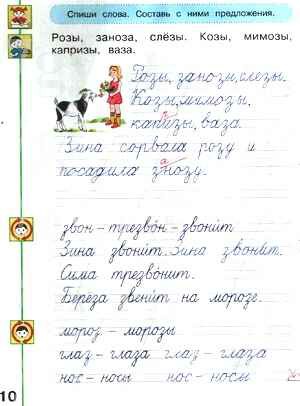 Спиши слова. Составь с ними предложения.
Розы, заноза, слёзы. Козы, мимозы,
капризы, ваза.
Розы, занозы, слезы.
Козы, мимозы,
капизы, ваза.
Зина сорвала розу и
посадила знозу.
звон – трезвон – звонит
Зина звонит. Зина звонит.
Сима трезвонит.
Берёза звенит на морозе.
мороз – морозы
глаз – глаза глаз – глаза
нос – носы нос – носы
10